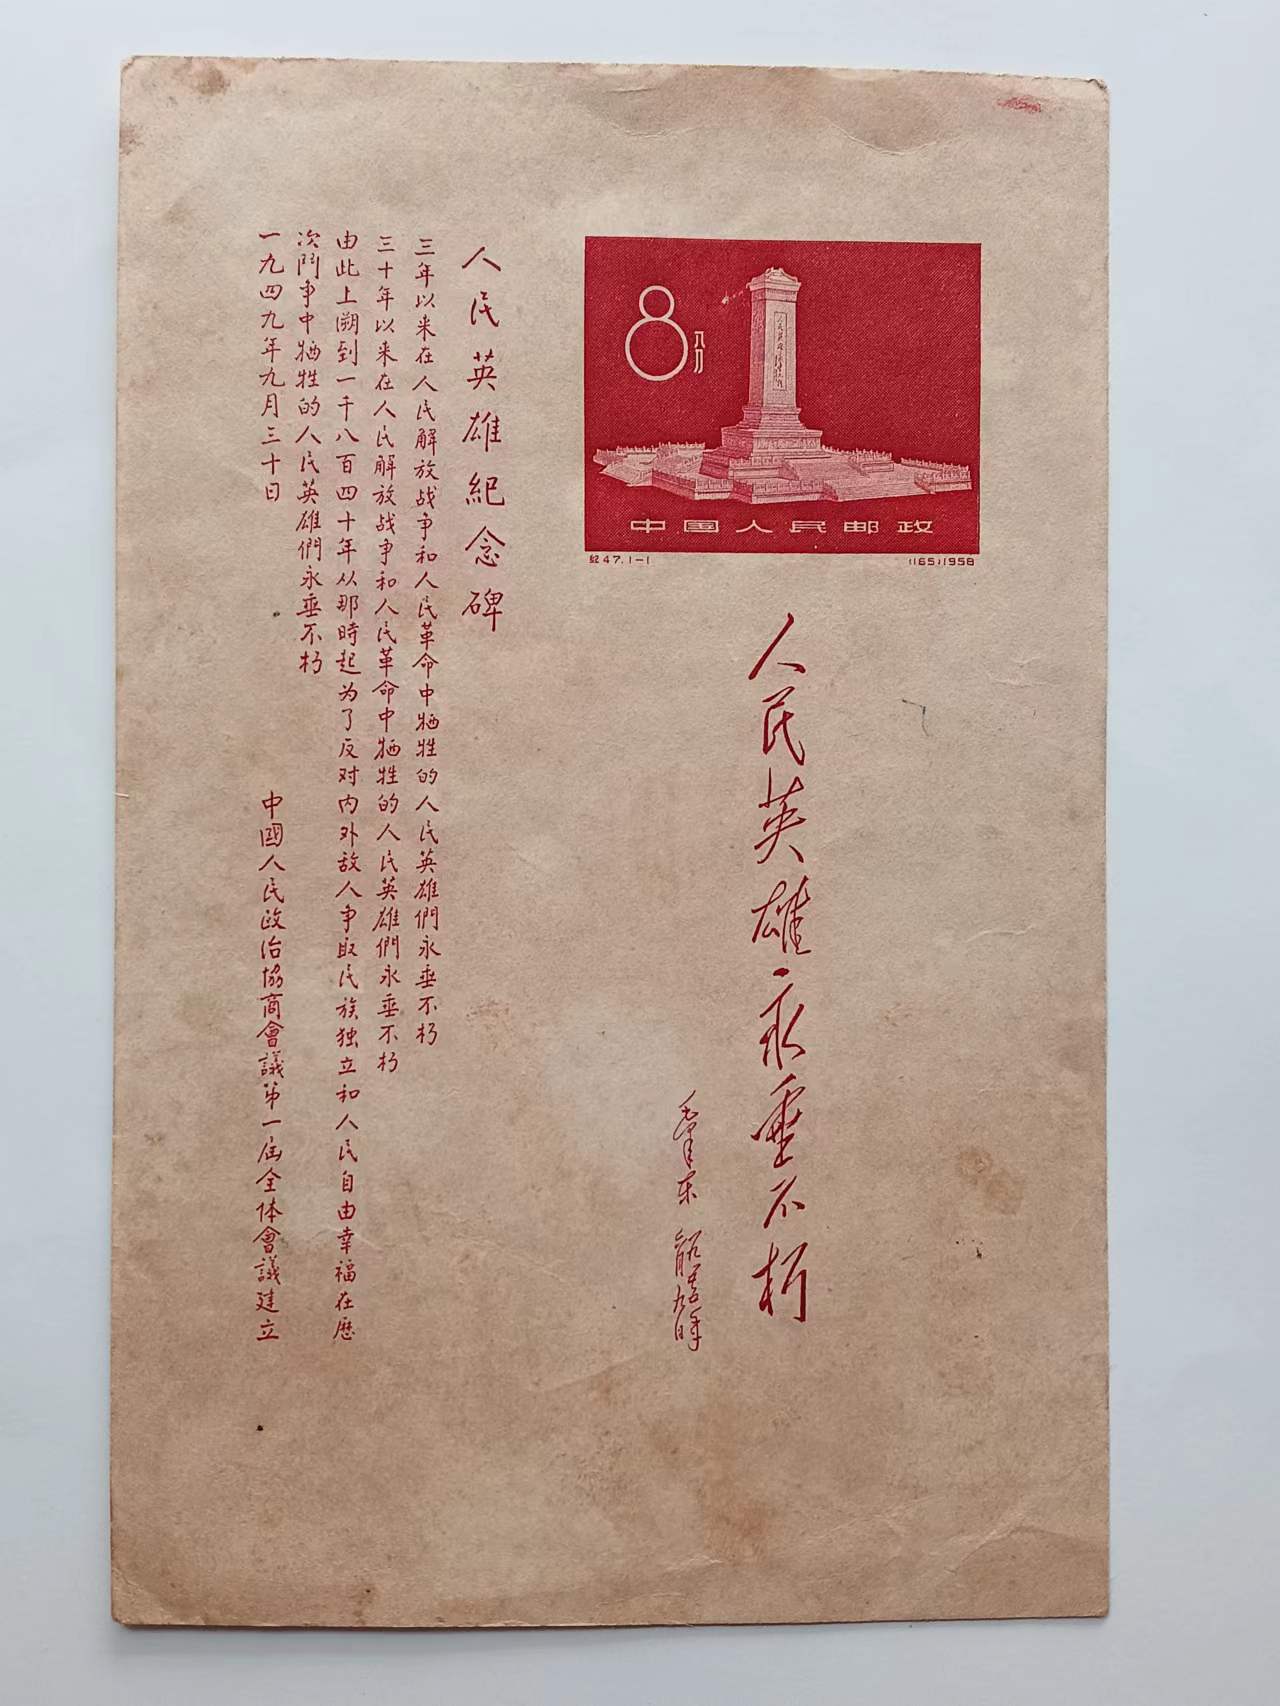 8
八分
人民英雄永垂不朽
中国人民邮政
纪47.1-1
(165)1958
人民英雄永垂不朽
毛泽东
一九五五年六月九日
人民英雄紀念碑
三年以来在人民解放战争和人民革命中牺牲的人民英雄們永垂不朽
三十年以来在人民解放战争和人民革命中牺牲的人民英雄們永垂不朽
由此上溯到一千八百四十年从那時起为了反对内外敌人争取民族独立和人民自由幸福在歷
次鬥争中牺牲的人民英雄們永垂不朽
一九四九年九月三十日
中國人民政治協商會議第一届全体會議建立